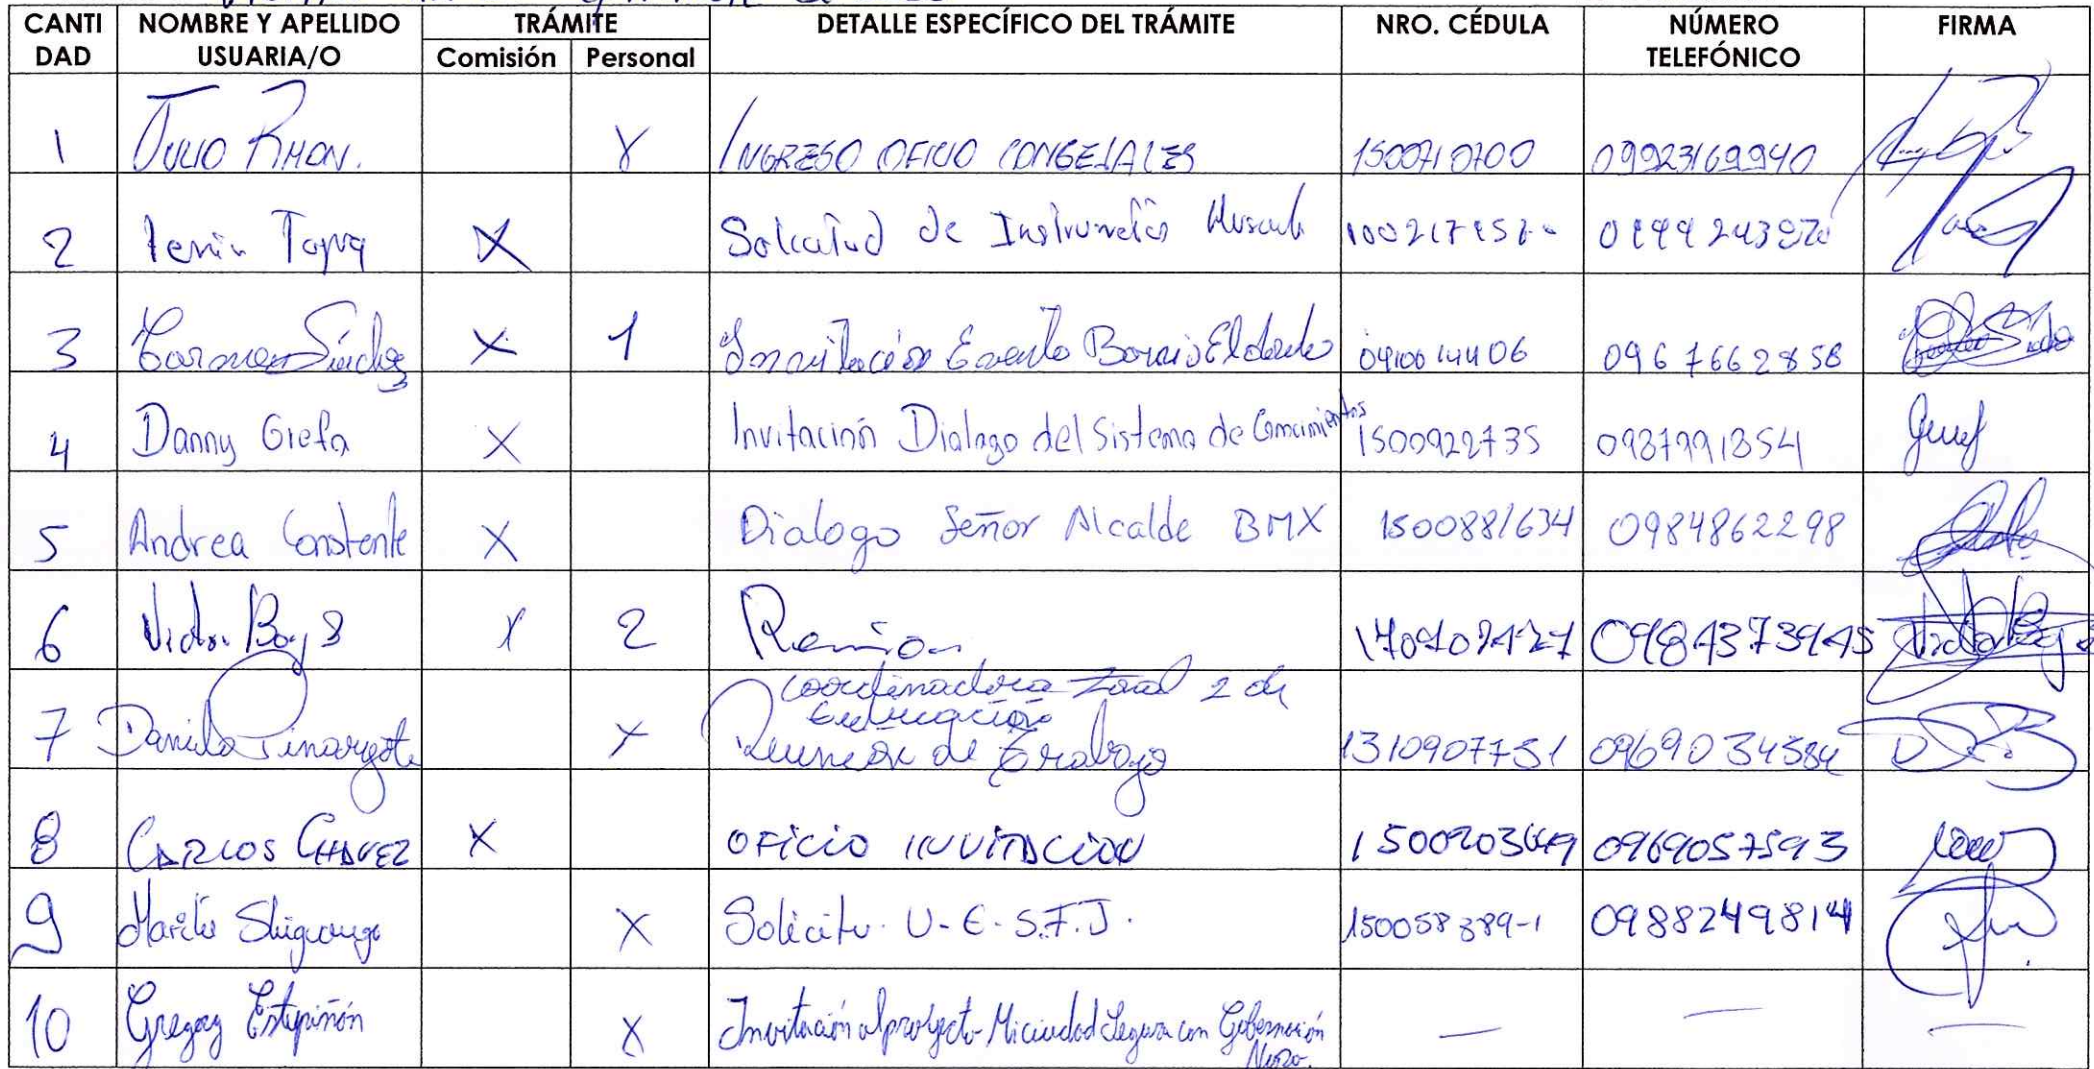 CANTI DAD | NOMBRE Y APELLIDO USUARIA/O | TRÁMITE | DETALLE ESPECÍFICO DEL TRÁMITE | NRO. CÉDULA | NÚMERO TELEFÓNICO | FIRMA
Comisión | Personal
1 | Julio Rhon. | X | INGRESO OFICIO CONSEJALES | 1500710700 | 09923169940
2 | Tapia | X | Solicitud de Instrumentos
3 | Carmen Sánchez | X | 1 | Invitación Evento Barrio Eldorado | 0967662858
4 | Danny Grefa | X | Invitación Dialogo del Sistema de Conocimientos | 1500922735 | 0987991354
5 | Andrea Constante | X | Dialogo Señor Alcalde BMX | 1500881634 | 0984862298
6 | Victor | X | 2 | Reunion | 0984373945
7 | Danilo Pinargote | X | Coordinadora Zonal 2 de
Educación
Reunión de Trabajo | 1310907751 | 0969034584
8 | CARLOS CHAVEZ | X | OFICIO INVITACION | 0969057593
9 | Shiguango | X | Solicitu. U.E.S.F.J. | 150058389-1 | 0988249814
10 | Gregory Estupiñón | X | Invitación al proyecto Mi ciudad Segura con Gobernación
Napo. | — | — | —